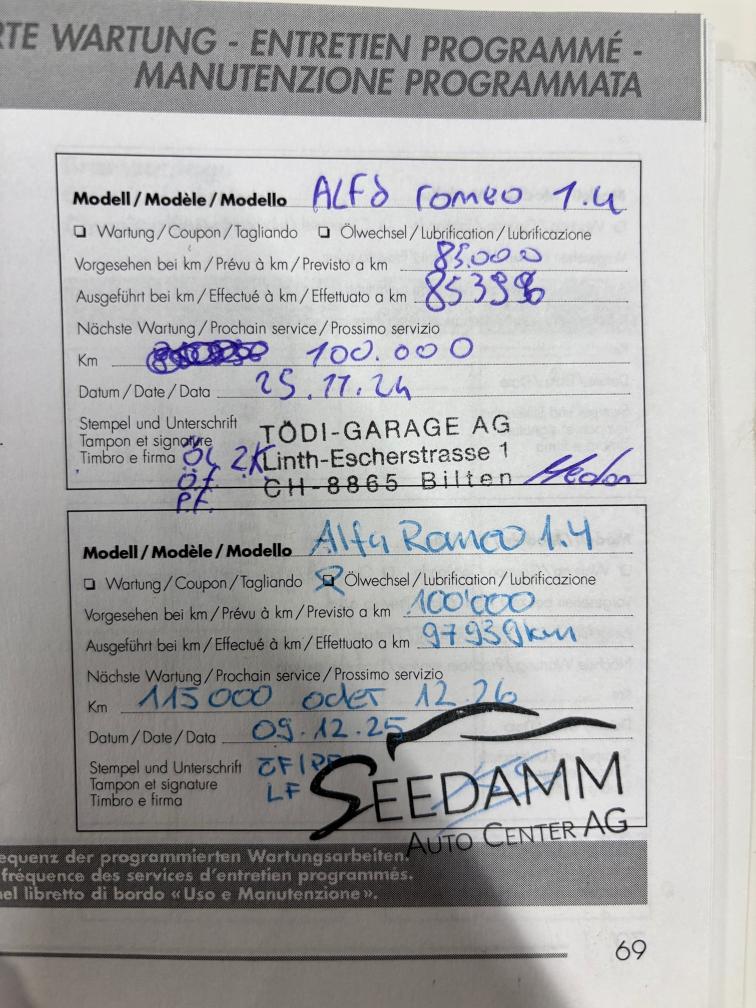 RTE WARTUNG - ENTRETIEN PROGRAMMÉ -
MANUTENZIONE PROGRAMMATA
Modell / Modèle / Modello ALFA romeo 1.4
Wartung / Coupon / Tagliando Ölwechsel / Lubrification / Lubrificazione
Vorgesehen bei km / Prévu à km / Previsto a km 85.000
Ausgeführt bei km / Effectué à km / Effettuato a km 85396
Nächste Wartung / Prochain service / Prossimo servizio
Km 100.000
Datum / Date / Data 25.11.24
Stempel und Unterschrift
Tampon et signature
Timbro e firma
ÖL ZK
ÖF
P.F.
TÖDI-GARAGE AG
Linth-Escherstrasse 1
CH-8865 Bilten
Modell / Modèle / Modello Alfa Romeo 1.4
Wartung / Coupon / Tagliando Ölwechsel / Lubrification / Lubrificazione
Vorgesehen bei km / Prévu à km / Previsto a km 100'000
Ausgeführt bei km / Effectué à km / Effettuato a km 97939km
Nächste Wartung / Prochain service / Prossimo servizio
Km 115000 oder 12.26
Datum / Date / Data 09.12.25
Stempel und Unterschrift
Tampon et signature
Timbro e firma
LF
SEEDAMM
AUTO CENTER AG
equenz der programmierten Wartungsarbeiten.
fréquence des services d'entretien programmés.
nel libretto di bordo «Uso e Manutenzione».
69